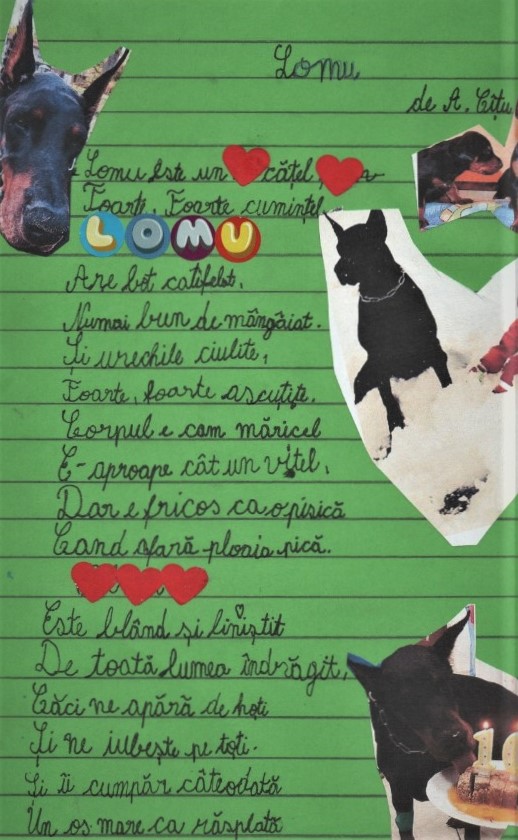 Lomu
de A. Cîțu
Lomu este un cățel
Foarte, Foarte cumințel
LOMU
Are bot catifelat,
Numai bun de mângâiat.
Și urechile ciulite,
Foarte, foarte ascuțite.
Corpul e cam măricel
E-aproape cât un vițel,
Dar e fricos ca o pisică
Cand afară ploaia pică.
Este blând și liniștit
De toată lumea îndrăgit,
Căci ne apără de hoți
Și ne iubește pe toți.
Și îi cumpăr câteodată
Un os mare ca răsplată
10